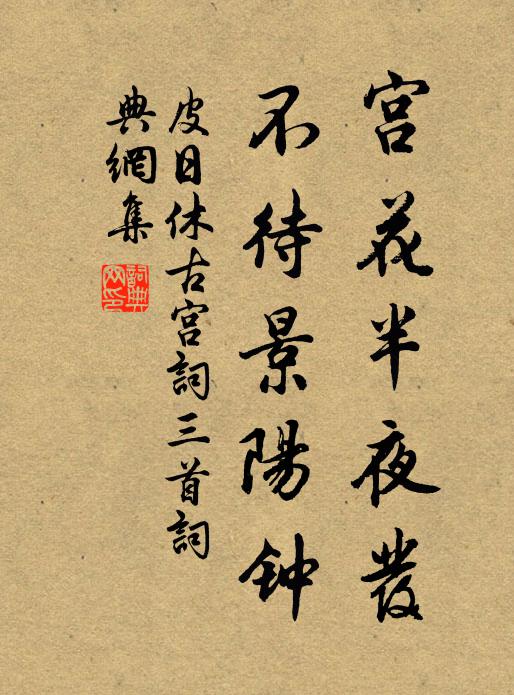 宫花半夜發
不待景陽钟
皮日休古宫詞三首詞
典網集
詞典网印